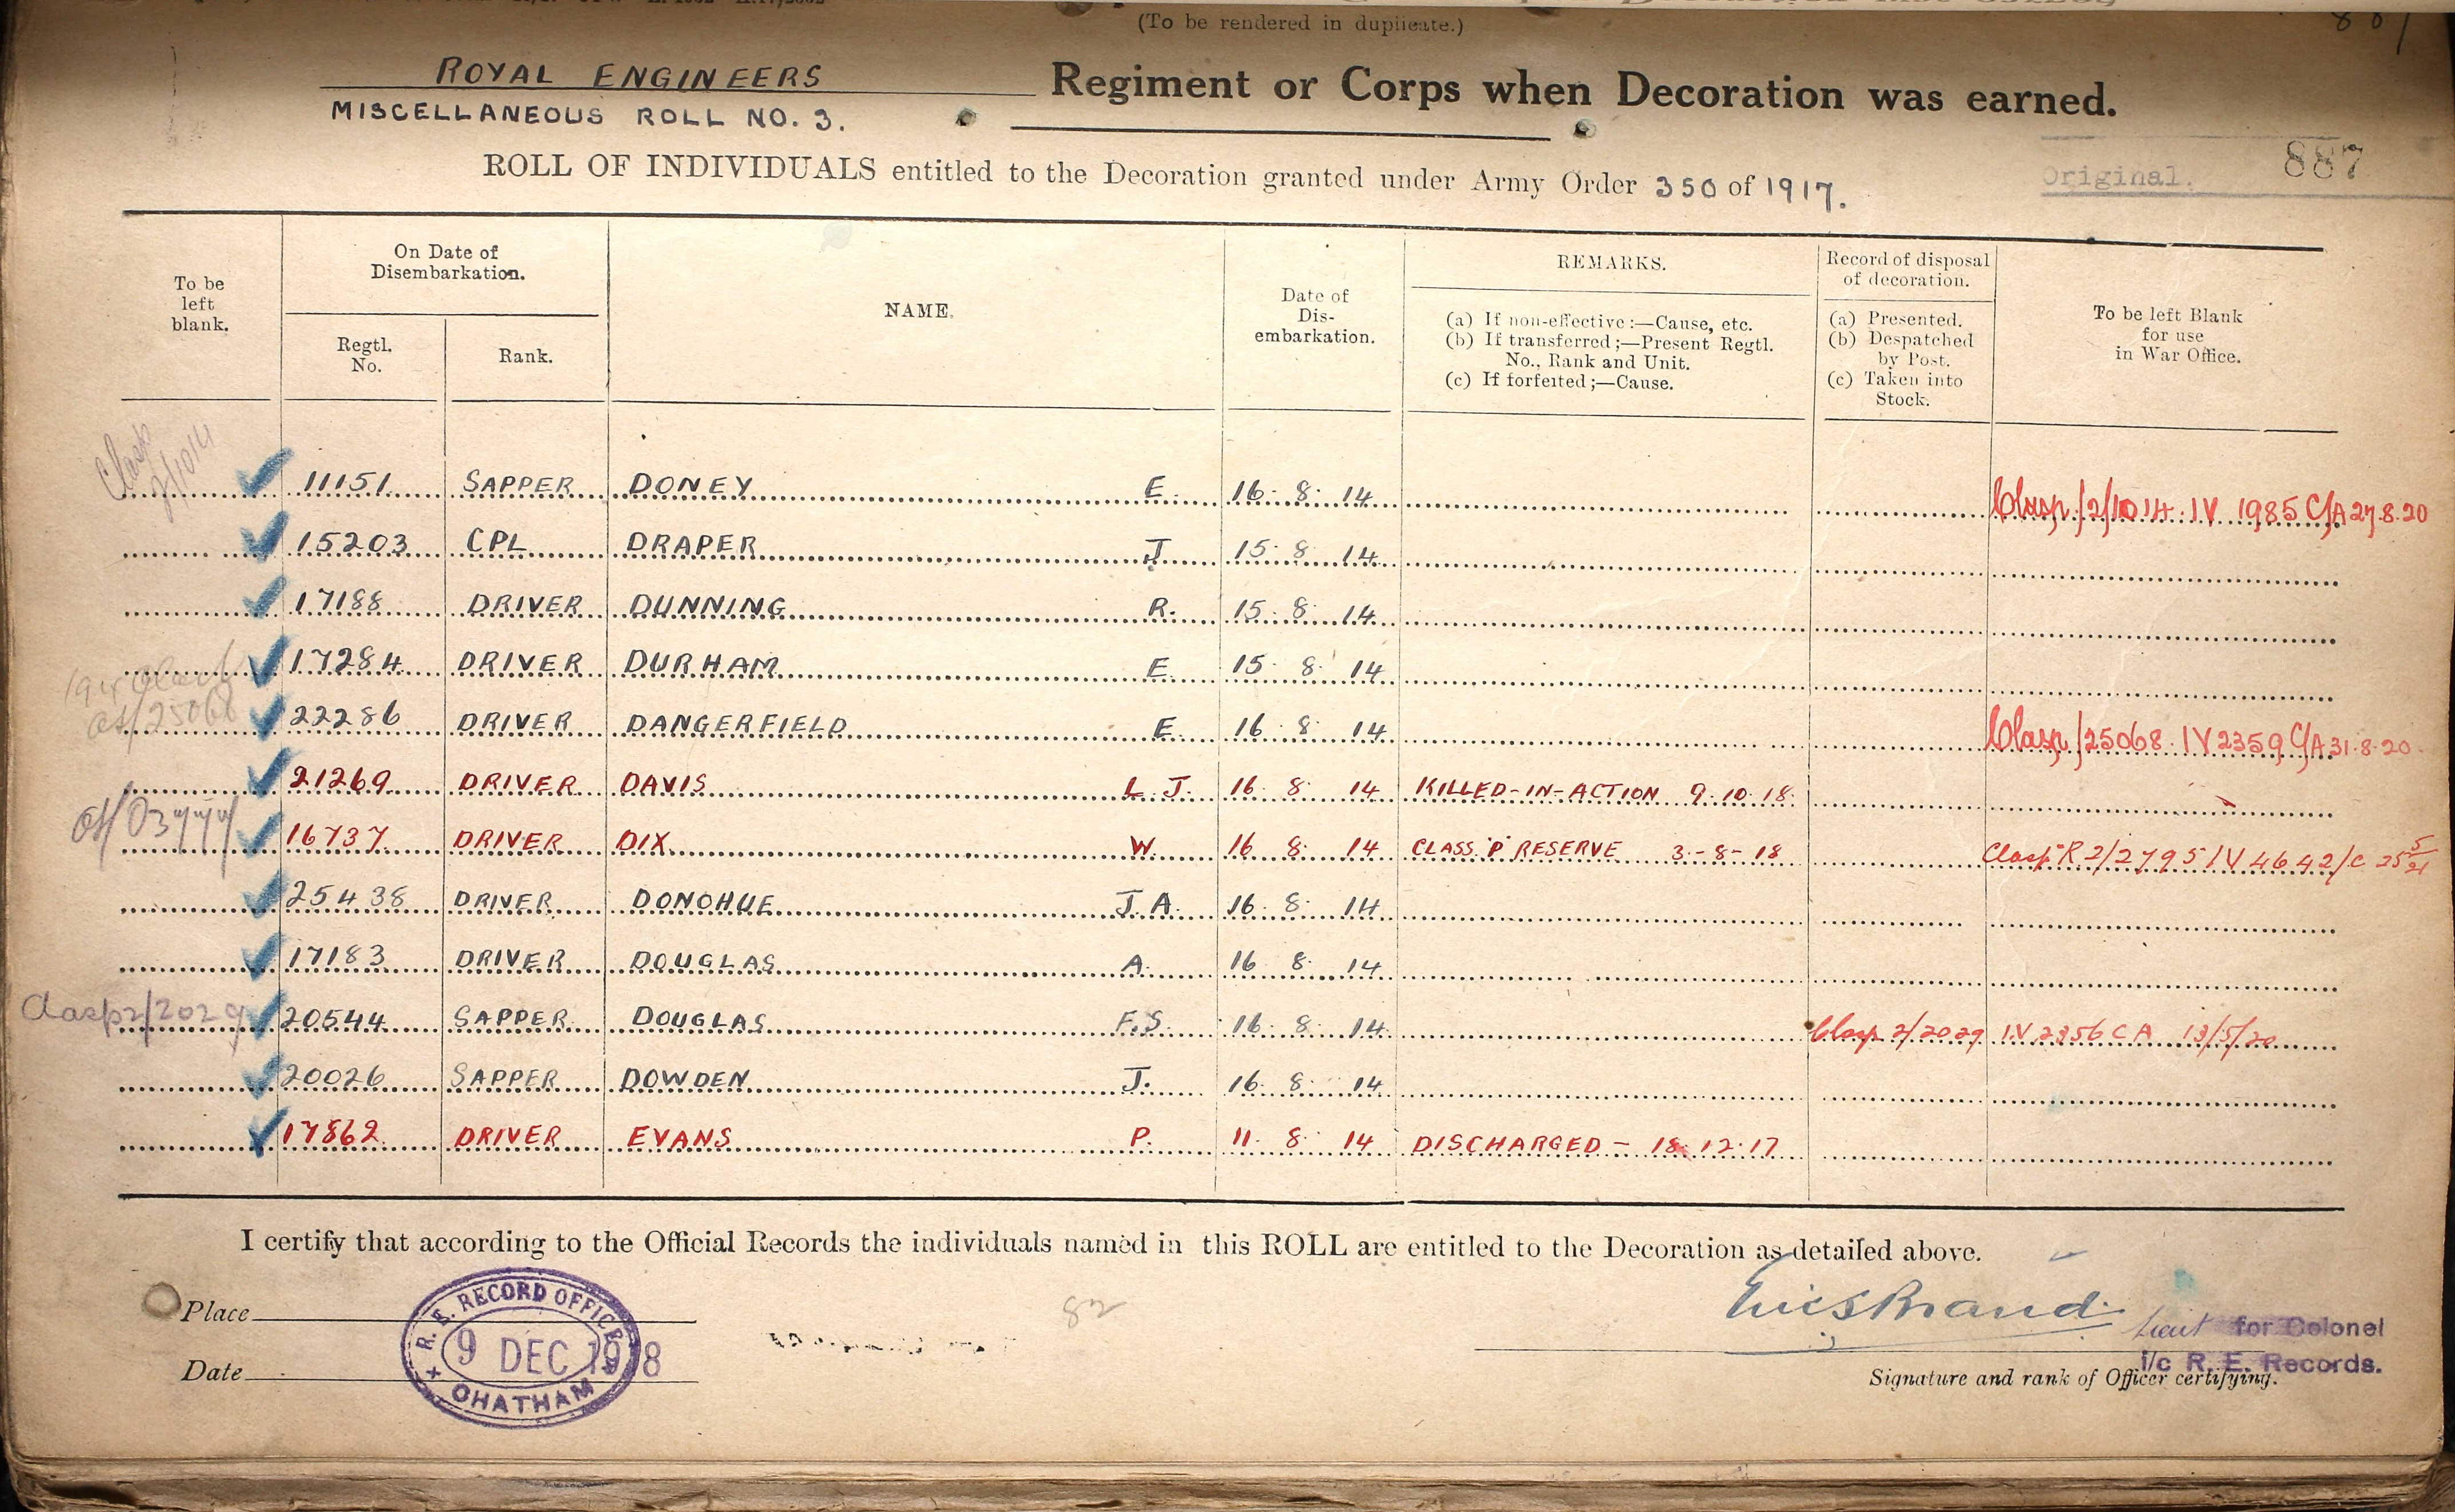 (To be rendered in duplicate.)
ROYAL ENGINEERS Regiment or Corps when Decoration was earned.
MISCELLANEOUS ROLL NO. 3.
ROLL OF INDIVIDUALS entitled to the Decoration granted under Army Order 350 of 1917.
Original. 887
To be left blank.
On Date of Disembarkation.
Regtl. No.
Rank.
NAME.
Date of Dis-embarkation.
REMARKS.
(a) If non-effective:—Cause, etc.
(b) If transferred;—Present Regtl. No., Rank and Unit.
(c) If forfeited;—Cause.
Record of disposal of decoration.
(a) Presented.
(b) Despatched by Post.
(c) Taken into Stock.
To be left Blank for use in War Office.
Clasp 2/1014 11151 SAPPER DONEY E. 16. 8. 14 Clasp/2/1014 IV 1985 C/A 27.8.20
15203 CPL DRAPER J. 15. 8. 14
17188 DRIVER DUNNING R. 15. 8. 14
17284 DRIVER DURHAM E. 15. 8. 14
22286 DRIVER DANGERFIELD E. 16. 8. 14 Clasp/25068 IV 2359 C/A 31.8.20
21269 DRIVER DAVIS L. J. 16. 8. 14 KILLED-IN-ACTION 9.10.18.
16737 DRIVER DIX W. 16. 8. 14 CLASS "P" RESERVE 3-8-18 Clasp R2/2795 IV 4642/C 25 5/21
25438 DRIVER DONOHUE J. A. 16. 8. 14
17183 DRIVER DOUGLAS A. 16. 8. 14
Clasp 2/2029 20544 SAPPER DOUGLAS F. S. 16. 8. 14 Clasp 2/2029 IV 2356 CA 13/5/20
20026 SAPPER DOWDEN J. 16. 8. 14
17862 DRIVER EVANS P. 11. 8. 14 DISCHARGED - 18.12.17
I certify that according to the Official Records the individuals named in this ROLL are entitled to the Decoration as detailed above.
Place
Date
R. E. RECORD OFFICE
9 DEC 1918
CHATHAM
82
Lieut for Colonel
i/c R. E. Records.
Signature and rank of Officer certifying.